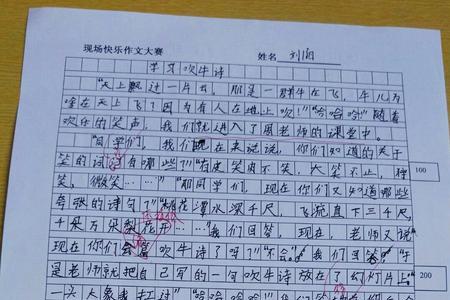 现场快乐作文大赛 姓名 刘
学习吹牛诗
"天上飘过一片云，那是一群牛在飞，牛儿为
啥在天上飞？因为有人在地上吹！""哈哈哈！"随着
欢乐的笑声，我们就进入了周老师的课堂中。
"同学们，我们现在来说说，你们知道的关于
笑的词有哪些？""有皮笑肉不笑，大笑不止，狂
笑，微笑……""那同学们，现在你们又知道哪些
夸张的诗句？""桃花潭水深千尺，飞流直下三千尺，
千朵万朵梨花开……"我们回答，现在，老师又说
现在你们会写吹牛诗了吗？""不会。"我们回答。于
是老师就把自己写的一句吹牛诗放在了幻灯片上。
一头大象我扛过""哈哈哈哈
100
200